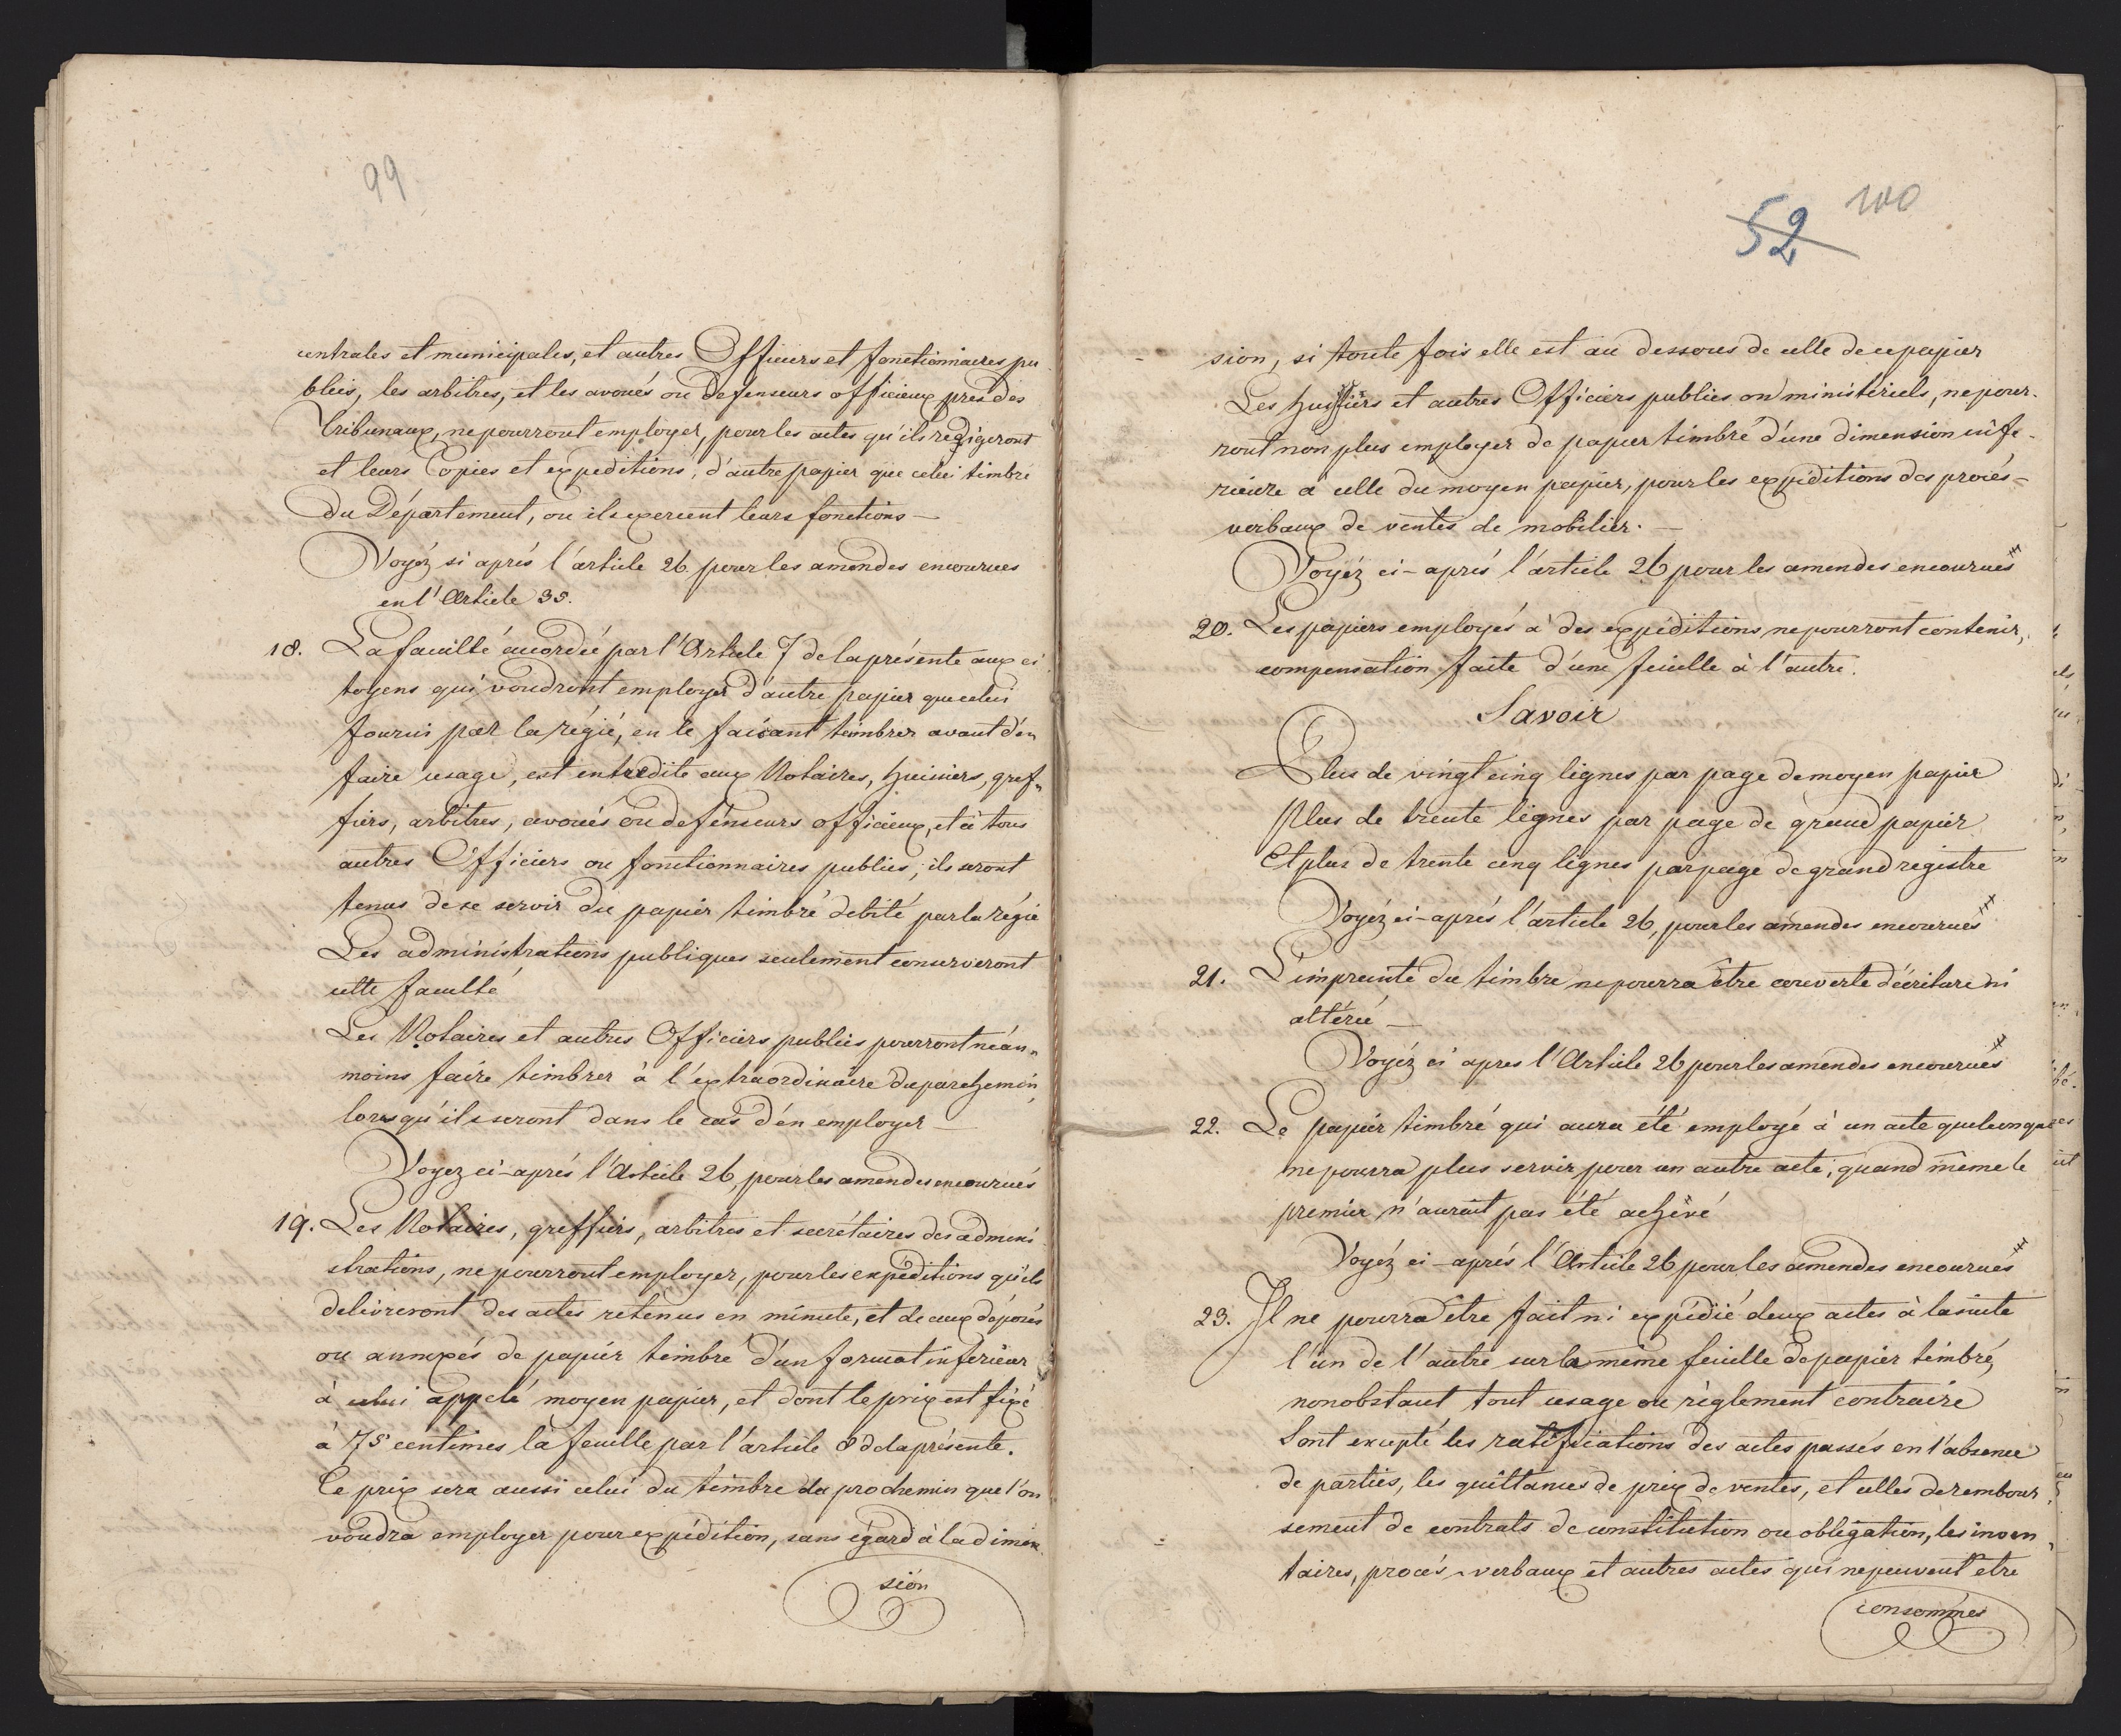 99
centrales et municipales, et autres Officiers et fonctionnaires pu
blics, les arbitres, et les avoués ou defenseurs officieux près des
Tribunaux, ne pourront employer, pour les actes qu'ils redigeront
et leurs Copies et expeditions, d'autre papier que celui timbré
du Département, ou ils exercent leurs fonctions —
Voyéz si aprés l'article 26 pour les amendes encourues
en l'Article 35.
18. La faculté accordée par l'Article 7 de la présente aux ci
toyens qui voudront employer d'autre papier que celui
fourni par la régie, en le faisant timbrer avant d'en
faire usage, est entredite aux Notaires, huissiers, gref„
fiers, arbitres, avoués ou defenseurs officieux, et à tous
autres Officiers ou fonctionnaires publics; ils seront
tenus de se servir du papier timbré debité par la régie
Les administrations publiques seulement conserveront
cette faculté
Les Notaires et autres Officiers publics pourront néan„
moins faire timbrer à l'extraordinaire du parchemin,
lorsqu'ils seront dans le cas d'en employer —
Voyez ci-aprés l'Article 26, pour les amendes encourués
19. Les Notaires, greffiers, arbitres et secrétaires des admini
strations, ne pourront employer, pour les expéditions qu'ils
delivreront des actes retenus en minute, et de ceux déposés
ou annexés de papier timbré d'un format inferieur
à celui appelé moyen papier, et dont le prix est fixé
à 75 centimes la feuille par l'article 8 de la présente.
Ce prix sera aussi celui du timbre du prochemin que l'on
voudra employer pour expédition, sans égard à la dimen
sion
52 100
sion, si toute fois elle est au dessous de celle de ce papier
Les huissiers et autres Officiers publics ou ministériels, ne pour-
ront non plus employer de papier timbré d'une dimension infe-
rieure à celle du moyen papier, pour les expéditions des procés-
verbaux de ventes de mobilier. —
Voyéz ci-aprés l'article 26 pour les amendes encourues
20. Les papiers employés à des expéditions ne pourront contenir,
compensation faite d'une feuille à l'autre.
Savoir
Plus de vingt cinq lignes par page de moyen papier
Plus de trente lignes par page de grand papier
Et plus de trente cinq lignes par page de grand registre
Voyéz ci-aprés l'article 26, pour les amendes encourues
21. L'impreinte du timbre ne pourra être couverte d'écriture ni
altérée —
Voyéz ci apres l'Article 26 pour les amendes encourues
22. Le papier timbré qui aura été employé à un acte quelconque
ne pourra plus servir pour un autre acte, quand même le
premier n'aurait pas été achevé
Voyéz ci-aprés l'Article 26 pour les amendes encourues
23. Il ne pourra être fait ni expédié deux actes à la suite
l'un de l'autre sur la même feuille de papier timbré,
nonobstant tout usage ou règlement contraire
Sont excepté les ratifications des actes passés en l'absence
de parties, les quittances de prix de ventes, et celles de rembour
sement de contrats de constitution ou obligation, les inven„
taires, procés-verbaux et autres actes qui ne peuvent etre
consommés